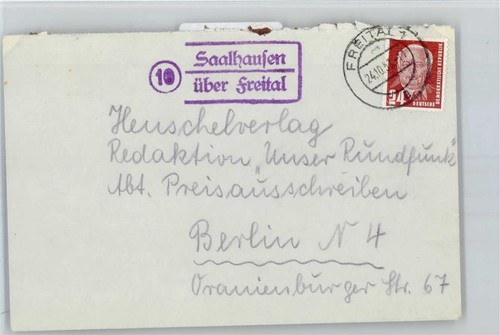 10
Saalhausen
über Freital
FREITAL 1
24.10.5
24
DEUTSCHE
DEMOKRATISCHE REPUBLIK
Henschelverlag
Redaktion „Unser Rundfunk"
Abt. Preisausschreiben
Berlin N 4
Oranienburger Str. 67